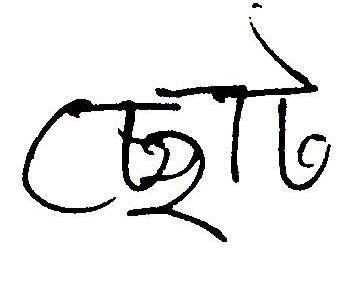 ছোট